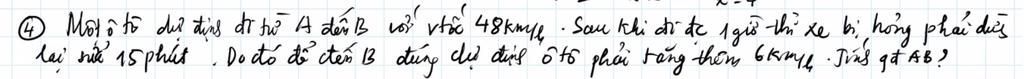 ④ Một ô tô dự định đi từ A đến B với vtốc 48km/h. Sau khi đi đc 1 giờ thì xe bị hỏng phải dừng
lại sửa 15 phút. Do đó để đến B đúng dự định ô tô phải tăng thêm 6km/h. Tính qđ AB?